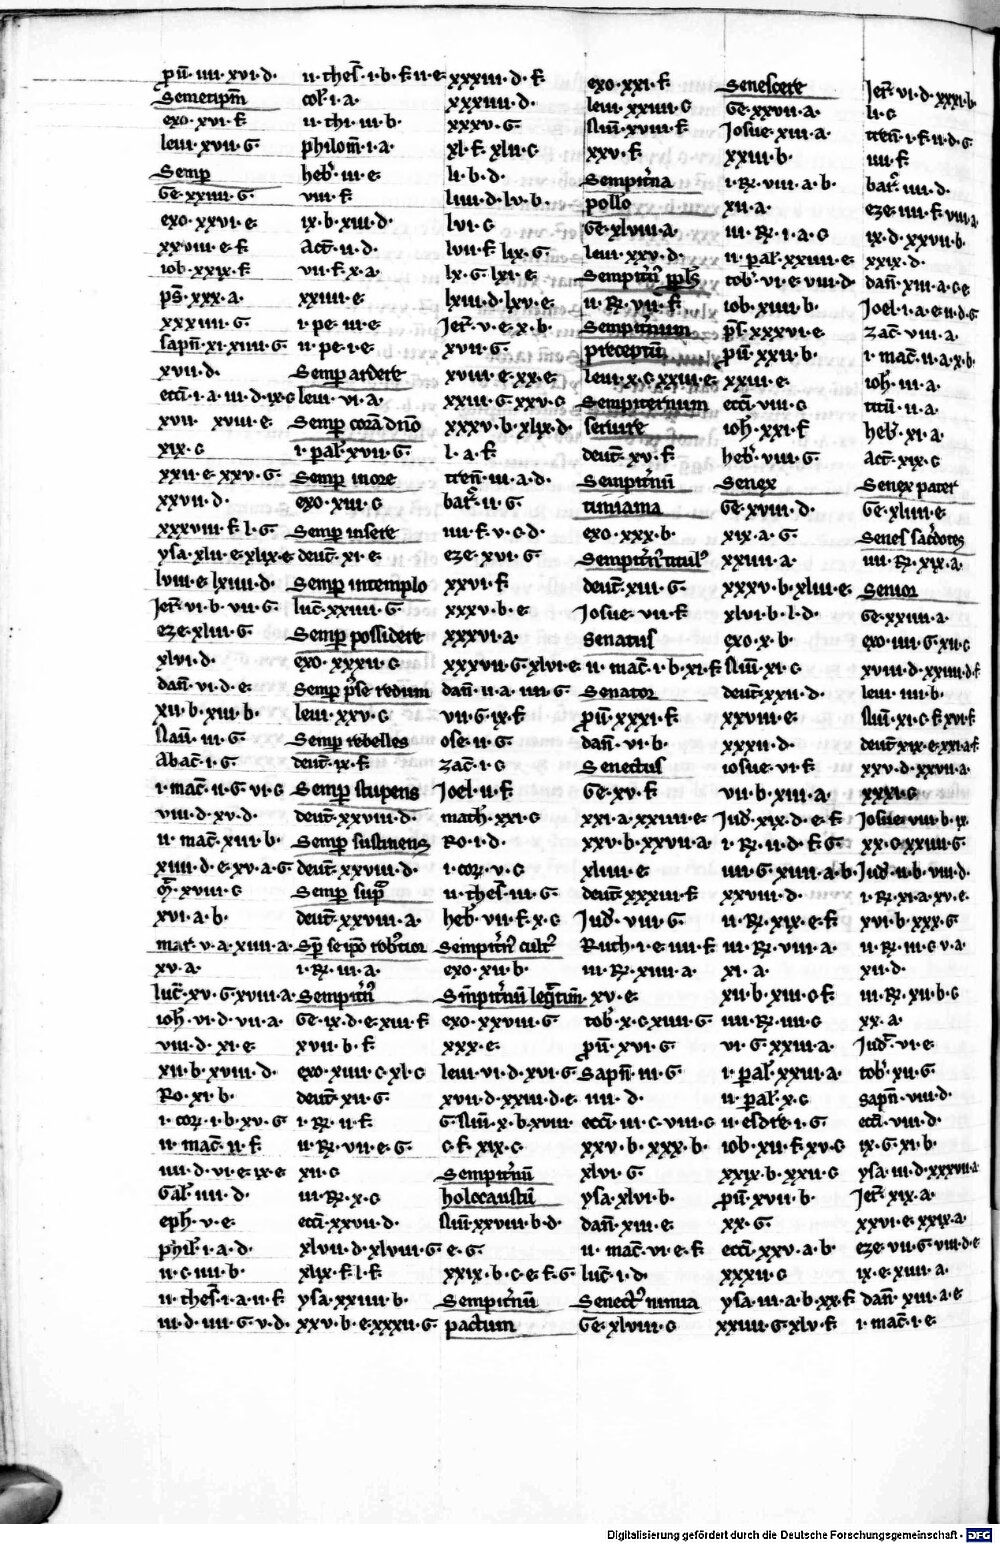 ꝓu̅·iiii·xvi·d·
Semetipm̅
exo·xvi·f
leui·xvii·G
Semꝑ
Ge·xxiiii·G·
exo·xxvi·e
xxviii·e·f
iob·xxix·f
ps̅·xxx·a·
xxxiiii·G·
sapn̅·xi·xiiii·G
xvii·d·
eccl̅·i·a·iii·d·ix·c
xvii· xviii·e·
xix·c
xxii·e·xxv·G·
xxvii·d·
xxxviii·f·l·G·
ysa·xlii·e·xlix·e
lviii·e·lxiiii·d·
Jer̅·vi·b·vii·G
eze·xliii·G
xlvi·d·
dan̅·vi·d·e·
xii·b·xiii·b·
Nau̅·iii·G·
Abac̅·i·G·
i·mac̅·ii·G·vi·c
viii·d·xv·d·
ii·mac̅·xiii·b·
xiiii·d·e·xv·a·G
xviii·c
xvi·a·b·
mar̅·v·a·xiiii·a·
xv·a·
luc̅·xv·G·xviii·a·
ioh̅·vi·d·vii·a·
viii·d·xi·e
xii·b·xviii·d·
Ro·xi·b·
i·cor̅·i·b·xv·G
ii·mac̅·ii·f
iiii·d·vi·e·ix·e
Gal̅·iiii·d·
eph̅·v·e·
phil̅·i·a·d·
ii·c·iiii·b·
ii·thes̅·i·a·ii·f
iii·d·iiii·G·v·d·
ii·thes̅·i·b·f·ii·e
col̅·i·a·
ii·thi·iii·b·
philom̅·i·a·
heb̅·iii·e·
viii·f
ix·b·xiii·d·
Act̅·ii·d·
vii·f·x·a·
xxiiii·e·
i·pe·iii·e·
ii·pe·i·e·
Semꝑ ardere
leui·vi·a·
Semꝑ cora̅ dn̅o
i·pal̅·xvii·G·
Semꝑ in ore
exo·xiii·c
Semꝑ insere
deut̅·xi·e·
Semꝑ in templo
luc̅·xxiiii·G·
Semꝑ possidere
exo·xxxii·c
leui·xxv·c
Semꝑ rebelles
deut̅·ix·f
Semꝑ stupens
deut̅·xxviii·d·
Semꝑ sustinens
deut̅·xxviii·d·
Semꝑ supra
deut̅·xxviii·a·
i·R·iii·a·
Sempit̅n̅ꝰ
Ge·ix·d·e·xiii·f
xvii·b·f·
exo·xiiii·c·xl·c
deut̅·xii·G
i·R·ii·f
ii·R·vii·e·G·
xii·c
iii·R·x·c
eccl̅·xxvii·d·
xlvii·d·xlviii·G
xlix·f·l·f
ysa·xxiiii·b·
xxv·b·e·xxxii·G
xxxiii·d·f
xxxiiii·d·
xxxv·G·
xl·f·xlii·c
li·b·d·
liiii·d·lv·b·
lvi·c
lvii·f·lix·G·
lx·G·lxi·e
lxiii·d·lxv·e·
Jer̅·v·e·x·b·
xvii·G·
xviii·e·xx·e·
xxiii·G·xxv·c
xxxv·b·xlix·d·
l·a·f
tren̅·iii·a·d·
bar̅·ii·G
iiii·f·v·c·d·
eze·xvi·G·
xxvi·f
xxxv·b·e
xxxvi·a·
xxxvii·G·xlvi·e
dan̅·ii·a·iiii·G
vii·G·ix·f
ose·ii·G
zac̅·i·c
Joel·ii·f
math̅·xxi·c
Ro·i·d·
i·cor̅·v·c
ii·thes̅·iii·G
heb̅·vii·f·x·c
Sempit̅n̅ꝰ cult̅ꝰ
exo·xii·b·
Sempit̅nu̅ legit̅im̅
exo·xxviii·G
xxx·e·
leui·vi·d·xvi·G
xvii·d·xxiii·d·e
G·Nu̅·x·b·xviii·
c·f·xix·c
Sempit̅nu̅
holocaustu̅
Nu̅·xxviii·b·d·
e·G·
xxix·b·c·e·f·G
Sempit̅nu̅
pactum
exo·xxi·f
leui·xxiiii·c
Nu̅·xviii·f
xxv·f
Sempit̅na
possessio
Ge·xlviii·a·
leui·xxv·d·
ii·R·vii·f
Sempit̅num
preceptu̅
leui·x·c·xxiii·e·
Sempiternum
seruire
deut̅·xv·f
Sempit̅nu̅
timiama
exo·xxx·b·
Sempit̅n̅ꝰ titulꝰ
deut̅·xiii·G·
Josue·vii·f
Senatus
ii·mac̅·i·b·xi·f
Senator
ꝓu̅·xxxi·f
dan̅·vi·b·
Senectus
Ge·xv·f
xxi·a·xxiiii·e
xxv·b·xxvii·a
xliiii·e
deut̅·xxxiii·f
Jud̅·viii·G
Ruth·i·e·iiii·f
iii·R·xiiii·a
xv·e·
tob̅·x·c·xiiii·G
ꝓu̅·xvi·G·
Sapn̅·iii·G
iiii·d·
eccl̅·iii·c·viii·c
xxv·b·xxx·b·
xlvi·G·
ysa·xlvi·b·
dan̅·xiii·e·
ii·mac̅·vi·e·f
luc̅·i·d·
Senectꝰ nimia
Ge·xlviii·c
Senescere
Ge·xxvii·a·
Josue·xiii·a·
xxiii·b·
i·R·viii·a·b·
xii·a·
iii·R·i·a·c
ii·pal̅·xxiiii·e
tob̅·vi·e·viii·d·
iob·xiiii·b·
ps̅·xxxvi·e
ꝓu̅·xxii·b·
xxiii·e·
eccl̅·viii·c
ioh̅·xxi·f
heb̅·viii·G·
Senex
Ge·xviii·d·
xix·a·G·
xxvii·a·
xxxv·b·xliii·e
xlvi·b·l·d·
exo·x·b·
Nu̅·xi·c
deut̅·xxii·d·
xxviii·e·
xxxii·d·
iosue·vi·f
vii·b·xiii·a·
Jud̅·xix·d·e·f
i·R·ii·d·f·G
iiii·G·xiiii·a·b·
xxviii·d·
ii·R·xix·e·f
iii·R·viii·a·
xi·a·
xii·b·xiii·c·f
iiii·R·iiii·c
vi·G·xxiii·a·
i·pal̅·xxvi·a·
ii·pal̅·x·c
ii·esdre·i·G
iob·xii·f·xv·c
xxix·b·xxxii·c
ꝓu̅·xvii·b·
xx·G·
eccl̅·xxv·a·b·
xxxii·c
ysa·iii·a·b·xx·f
xxiiii·G·xlv·f
Jer̅·vi·d·xxxi·b·
li·c
tren̅·i·f·ii·d·G
iiii·f
bar̅·iiii·d·
eze·iiii·f·viii·a·
ix·d·xxvii·b·
xxix·d·
dan̅·xiii·a·c·e
Joel·i·a·e·ii·d·G
zac̅·viii·a·
i·mac̅·ii·a·x·b·
ioh̅·iii·a·
titu̅·ii·a·
heb̅·xi·a·
act̅·xix·c
Senex pater
Ge·xliiii·e
Senes sac̅dotes
iiii·R·xix·a·
Senior
Ge·xxiiii·a·
exo·iiii·G·xii·c
xviii·d·xxiiii·d·f
leui·iiii·b·
Nu̅·xi·c·f·xvi·f
deut̅·xix·e·xxi·a·f
xxv·d·xxvii·a·
xxxi·c
Josue·viii·b·ix·
xx·c·xxiiii·G
Jud̅·ii·b·viii·d·
i·R·xi·a·xv·e·
xvi·b·xxx·G
ii·R·iii·c·v·a·
xii·d·
iii·R·xii·b·c
xx·a·
Jud̅·vi·e·
tob̅·xii·G
sapn̅·viii·d·
eccl̅·viii·d·
ix·G·xi·b·
ysa·iii·d·xxxvii·a
Jer̅·xix·a·
xxvi·e·xxix·a·
eze·vii·G·viii·d·e
ix·e·xiiii·a·
dan̅·xiii·a·e
i·mac̅·i·e·
Digitalisierung gefördert durch die Deutsche Forschungsgemeinschaft · DFG